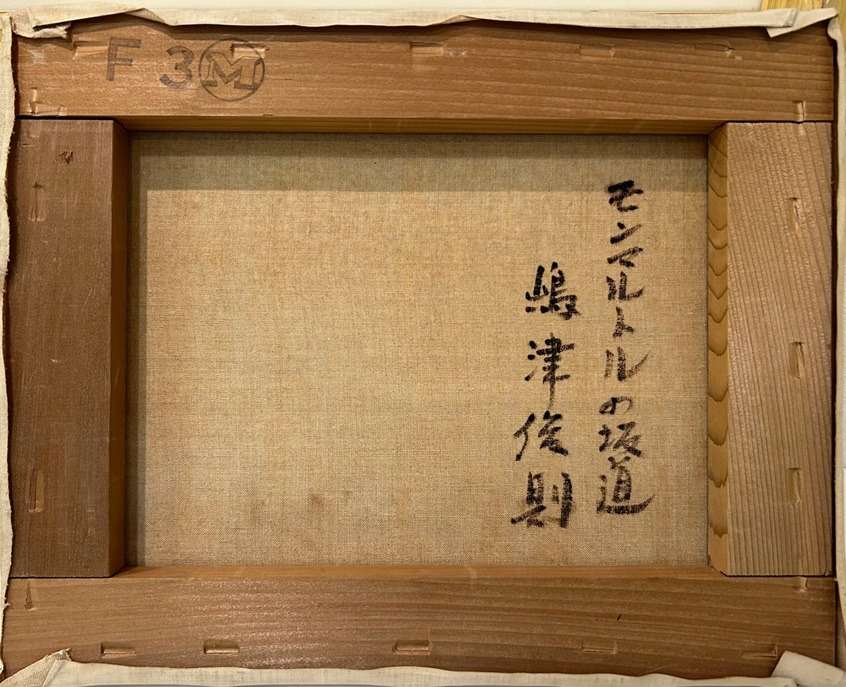 F3Ⓜ
モンマルトルの坂道
嶋津俊則